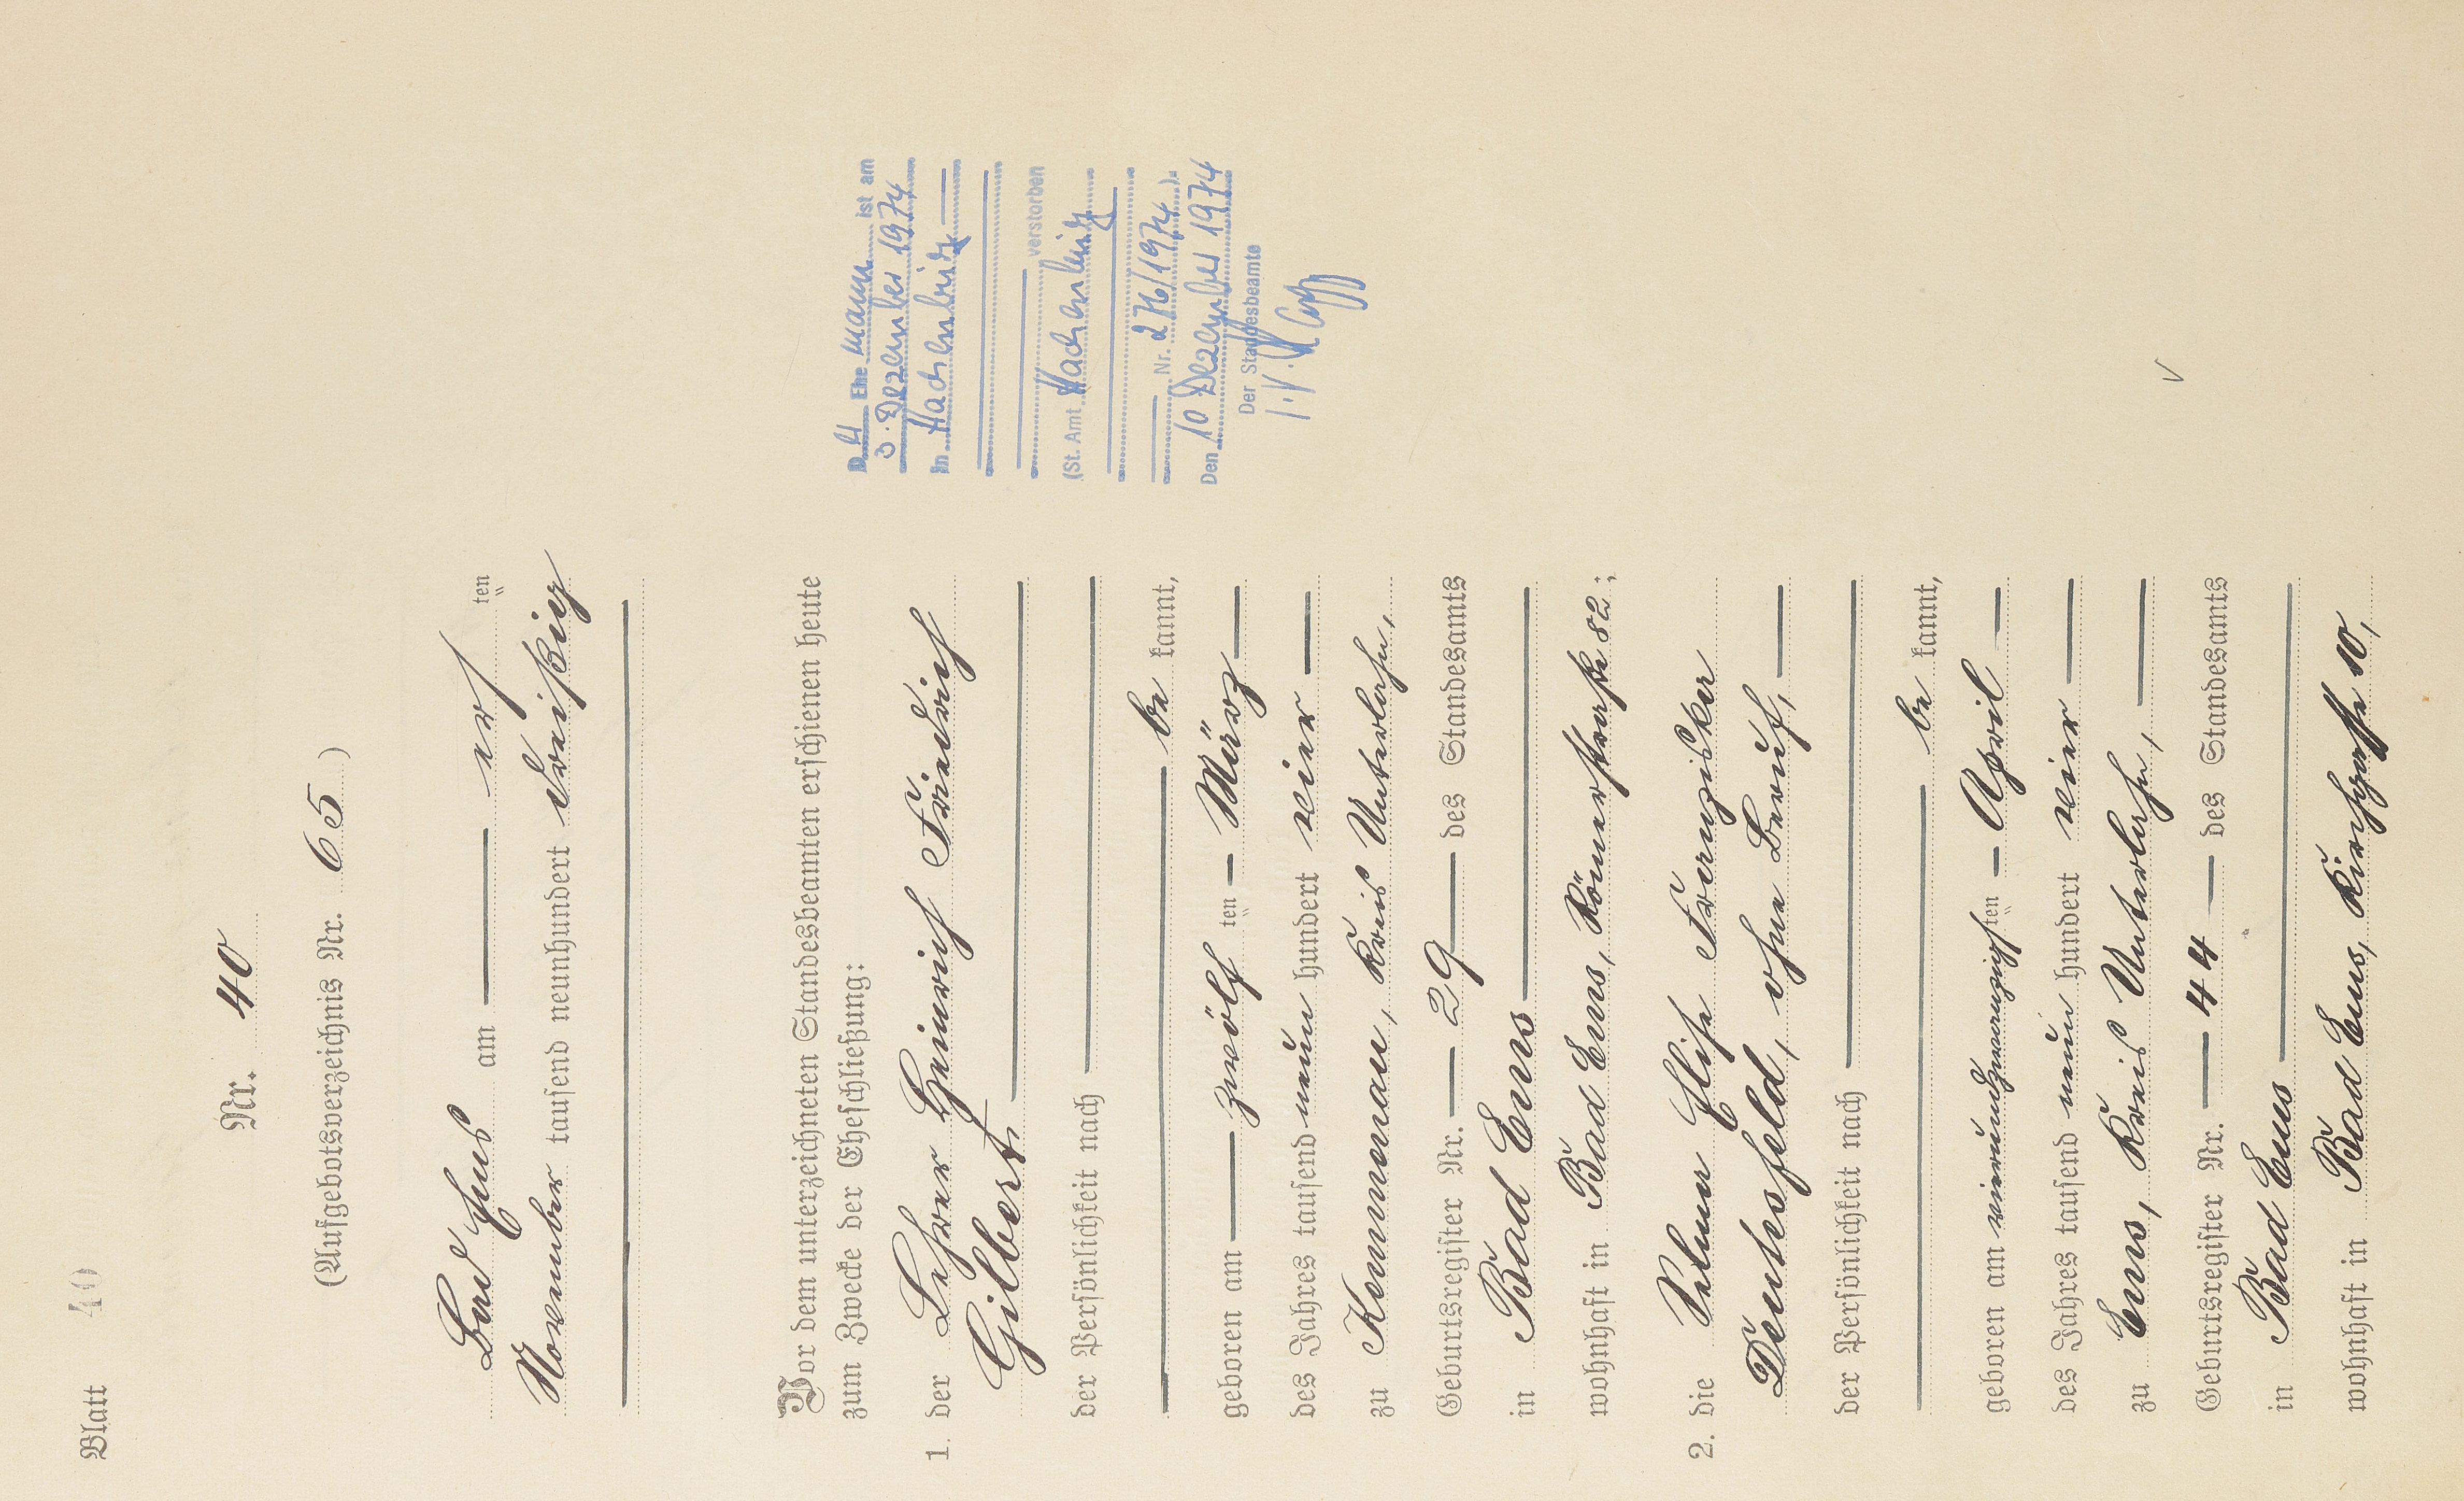 Blatt 40
Nr. 40
(Aufgebotsverzeichnis Nr. 65)
Bad Ems am elf ten
November tausend neunhundert dreißig
Vor dem unterzeichneten Standesbeamten erschienen heute
zum Zwecke der Eheschließung:
1. der Lehrer Heinrich Friedrich
Gilbert,
der Persönlichkeit nach
be kannt,
geboren am zwölf ten März
des Jahres tausend neun hundert vier
zu Kemmenau, Kreis Unterlahn,
Geburtsregister Nr. 29 des Standesamts
in Bad Ems
wohnhaft in Bad Ems, Römerstraße 82;
2. die Selma Elise Franziska
Deutesfeld, ohne Beruf,
der Persönlichkeit nach
be kannt,
geboren am vierundzwanzigsten April
des Jahres tausend neun hundert vier
zu Ems, Kreis Unterlahn,
Geburtsregister Nr. 44 des Standesamts
in Bad Ems
wohnhaft in Bad Ems, Kirchgasse 10,
D er Ehe mann ist am
3. Dezember 1974
in Hachenburg
verstorben
(St. Amt Hachenburg
Nr. 276/1974)
Den 10 Dezember 1974
Der Standesbeamte
I.V.